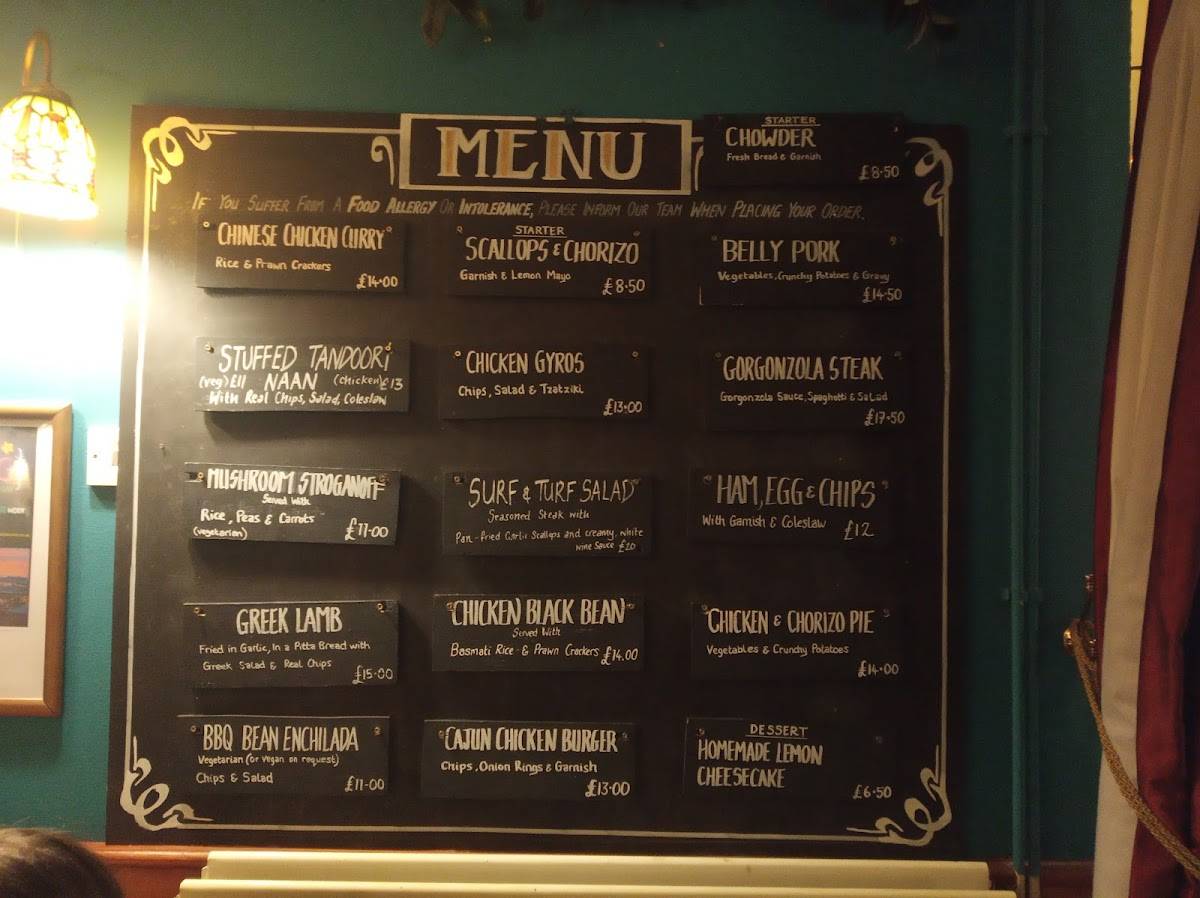 MENU
STARTER
CHOWDER
Fresh Bread & Garnish
£8·50
IF YOU SUFFER FROM A FOOD ALLERGY OR INTOLERANCE, PLEASE INFORM OUR TEAM WHEN PLACING YOUR ORDER.
CHINESE CHICKEN CURRY
Rice & Prawn Crackers
£14·00
STARTER
SCALLOPS & CHORIZO
Garnish & Lemon Mayo
£8·50
BELLY PORK
Vegetables, Crunchy Potatoes & Gravy
£14·50
STUFFED TANDOORI
(veg) £11 NAAN (chicken) £13
With Real Chips, Salad, Coleslaw
CHICKEN GYROS
Chips, Salad & Tzatziki
£13·00
GORGONZOLA STEAK
Gorgonzola Sauce, Spaghetti & Salad
£17·50
MUSHROOM STROGANOFF
Served With
Rice, Peas & Carrots
(vegetarian) £11·00
SURF & TURF SALAD
Seasoned Steak with
Pan-Fried Garlic Scallops and creamy, white
wine Sauce £20
HAM, EGG & CHIPS
With Garnish & Coleslaw £12
GREEK LAMB
Fried in Garlic, In a Pitta Bread with
Greek Salad & Real Chips
£15·00
CHICKEN BLACK BEAN
Served With
Basmati Rice & Prawn Crackers £14.00
CHICKEN & CHORIZO PIE
Vegetables & Crunchy Potatoes
£14·00
BBQ BEAN ENCHILADA
Vegetarian (or Vegan on request)
Chips & Salad
£11·00
CAJUN CHICKEN BURGER
Chips, Onion Rings & Garnish
£13·00
DESSERT
HOMEMADE LEMON
CHEESECAKE
£6·50